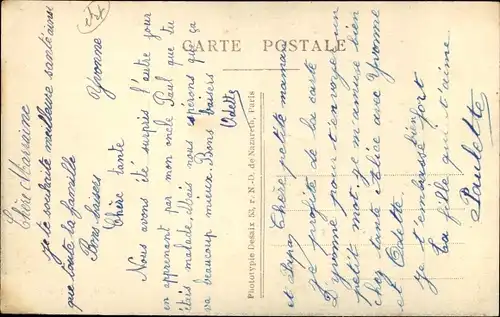 CARTE POSTALE
Chère Marraine
je te souhaite meilleure santé ainsi
que toute la famille
Bons baisers
Yvonne
Chère tante
Nous avons été surpris l'autre jour
en apprenant par mon oncle Paul que tu
étais malade. Mais nous espérons que ça
va beaucoup mieux. Bons baisers
Odette
Phototypie Desaix 53, r. N.-D. de Nazareth, Paris
Chère petite maman
et Papa
je profite de la carte
D'yvonne pour t'envoyer un
petit mot. je m'amuse bien
chez tante Alice avec Yvonne
et Odette.
Je t'embrasse bien fort
La fille qui t'aime
Paulette